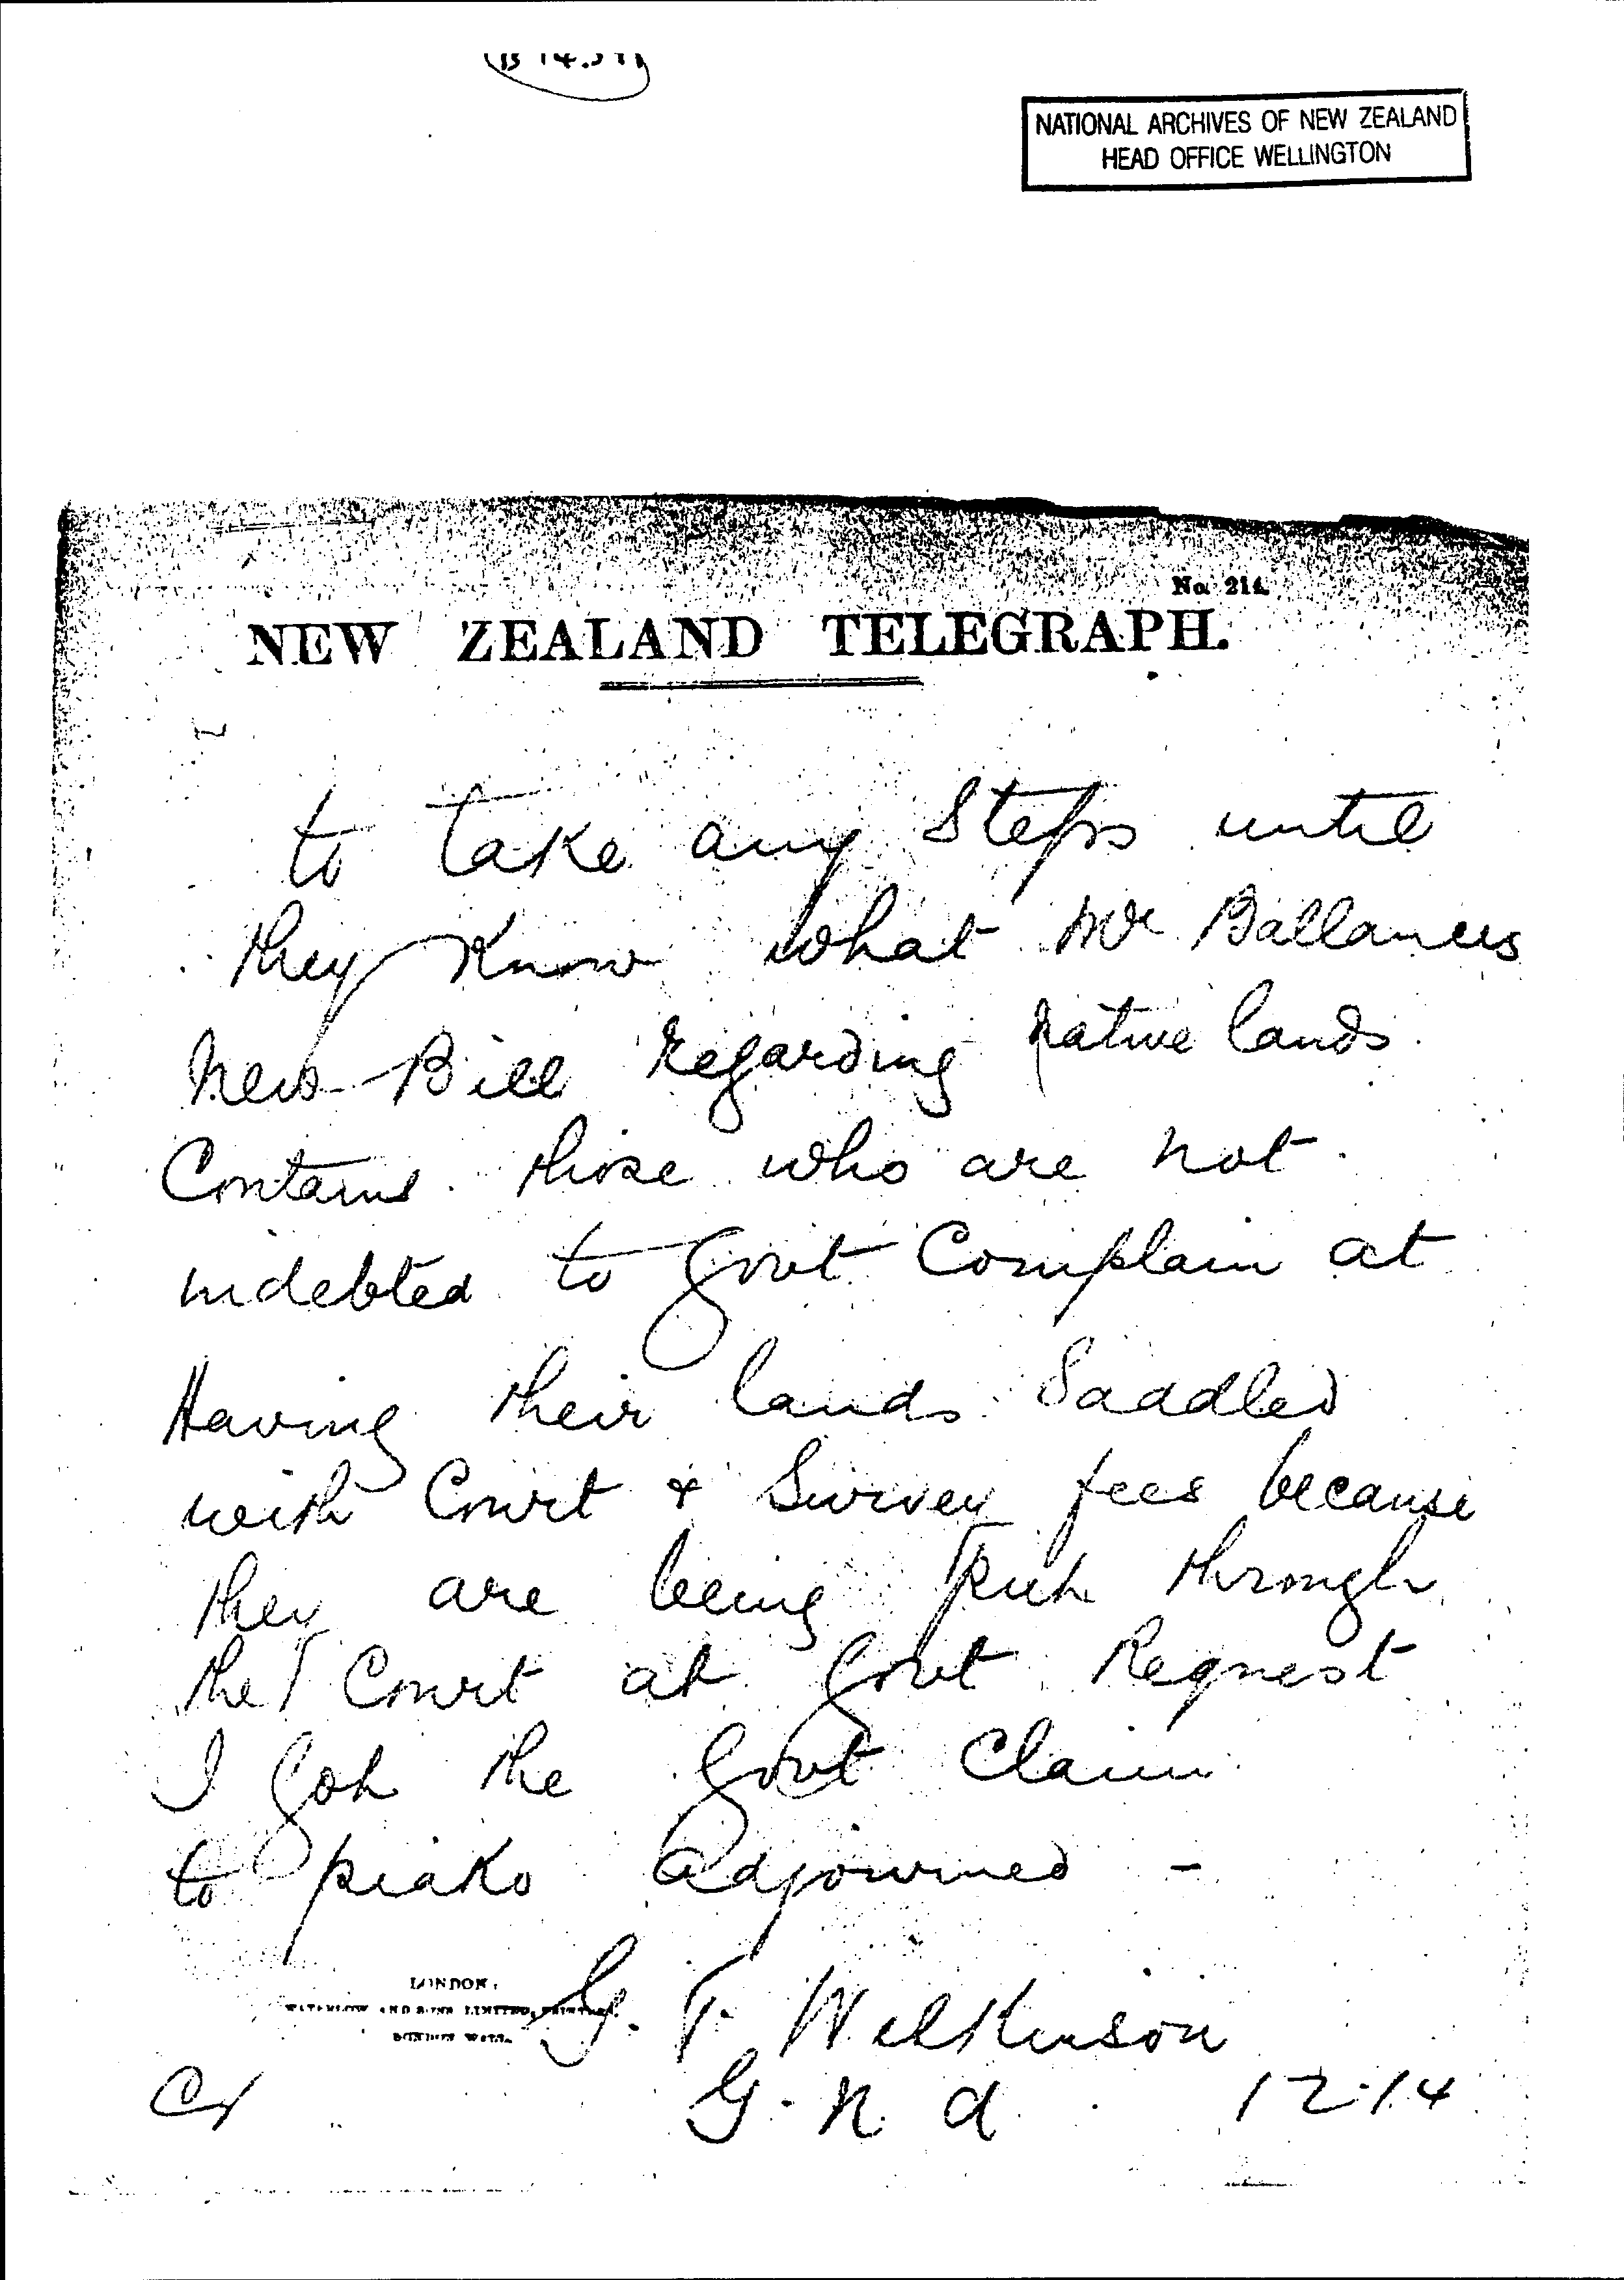 NATIONAL ARCHIVES OF NEW ZEALAND
HEAD OFFICE WELLINGTON
No. 214.
NEW ZEALAND TELEGRAPH.
to take any Steps until
they Know what Mr Ballances
New Bill regarding native lands
Contains those who are not
indebted to Govt Complain at
Having their lands Saddled
with Court & Survey fees because
they are being put through
the Court at Govt Request
I Got the Govt Claim
to piako adjourned -
LONDON.
WATERLOW AND SONS LIMITED, PRINTERS,
LONDON WALL.
G. T. Wilkinson
G. N. a. 12.14